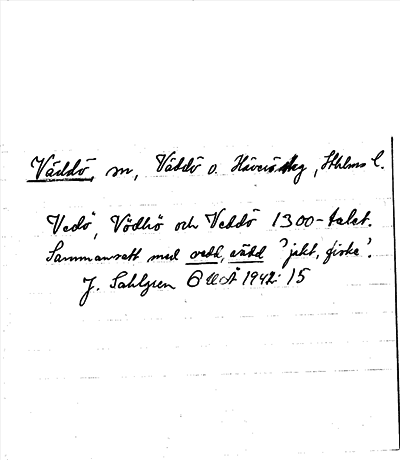 Väddö, sn, Väddö o. Häverö skg, Sthlms l.
Vedö, Vödhö och Veddö 1300-talet.
Sammansatt med vedh, vädd 'jakt, fiske'.
J. Sahlgren 1942: 15